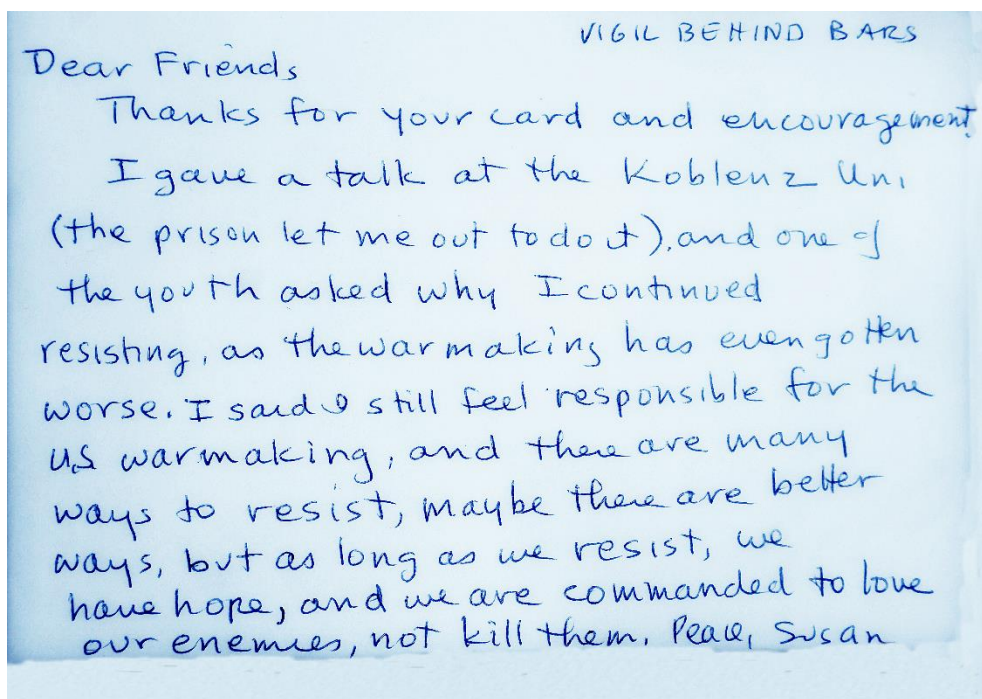 VIGIL BEHIND BARS
Dear Friends
Thanks for your card and encouragement.
I gave a talk at the Koblenz Uni
(the prison let me out to do it), and one of
the youth asked why I continued
resisting, as the warmaking has even gotten
worse. I said I still feel responsible for the
U.S warmaking, and there are many
ways to resist, maybe there are better
ways, but as long as we resist, we
have hope, and we are commanded to love
our enemies, not kill them. Peace, Susan